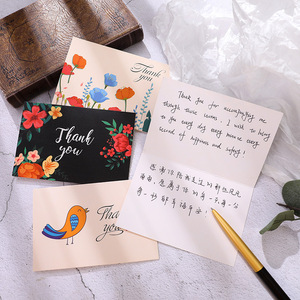 Thank
you
Thank
you
Thank
you
Thank you for accompanying me
through these corners, I wish to being
to you every day every minute every
second of happiness and safety!
感谢你陪我走过的那些风风
雨雨,愿属于你的每一天每一分
每一秒都幸福平安!